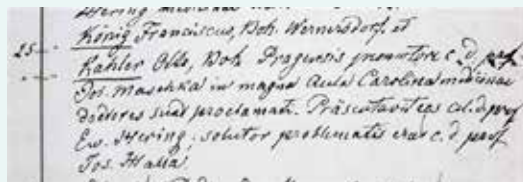 Hering medicinae
König Franciscus, Boh. Wernersdorf. et
25
Kahler Otto, Boh Pragensis promotore c. d. prof
Jos. Maschka in magna Aula Carolina medicinae
doctores sunt proclamati. Präsentavit eos cel. d. prof
Ew. Hering; solutor problematis erat c. d. prof
Jos. Halla.